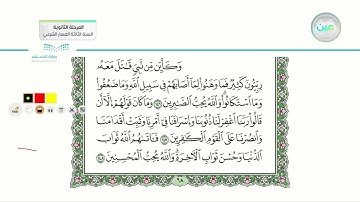 المرحلة الثانوية
السنة الثالثة المسار الشرعي
عين
وَكَأَيِّن مِّن نَّبِيٍّ قَٰتَلَ مَعَهُۥ
رِبِّيُّونَ كَثِيرٌ فَمَا وَهَنُوا۟ لِمَآ أَصَابَهُمْ فِى سَبِيلِ ٱللَّهِ وَمَا ضَعُفُوا۟
وَمَا ٱسْتَكَانُوا۟ وَٱللَّهُ يُحِبُّ ٱلصَّٰبِرِينَ ١٤٦ وَمَا كَانَ قَوْلَهُمْ إِلَّآ أَن
قَالُوا۟ رَبَّنَا ٱغْفِرْ لَنَا ذُنُوبَنَا وَإِسْرَافَنَا فِىٓ أَمْرِنَا وَثَبِّتْ أَقْدَامَنَا
وَٱنصُرْنَا عَلَى ٱلْقَوْمِ ٱلْكَٰفِرِينَ ١٤٧ فَـَٔاتَىٰهُمُ ٱللَّهُ ثَوَابَ
ٱلدُّنْيَا وَحُسْنَ ثَوَابِ ٱلْـَٔاخِرَةِ وَٱللَّهُ يُحِبُّ ٱلْمُحْسِنِينَ ١٤٨
٦٨